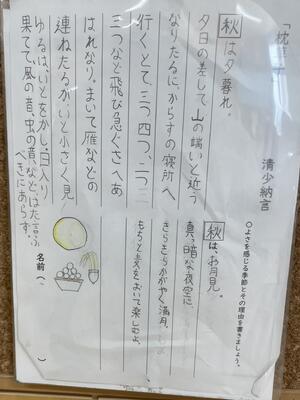 「枕草子
清少納言
秋は夕暮れ。
夕日の差して、山の端いと近う
なりたるに、からすの寝所へ
行くとて、三つ四つ、二つ三
三つなど飛び急ぐさへあ
はれなり。まいて雁などの
連ねたるが、いと小さく見
ゆるは、いとをかし。日入り
果てて、風の音、虫の音など、はた言ふ
べきにあらず。
○よさを感じる季節とその理由を書きましょう。
秋は、お月見。
真っ暗な夜空に、
きらきらかがやく満月。
をおいて楽しむよ。
名前（　　）